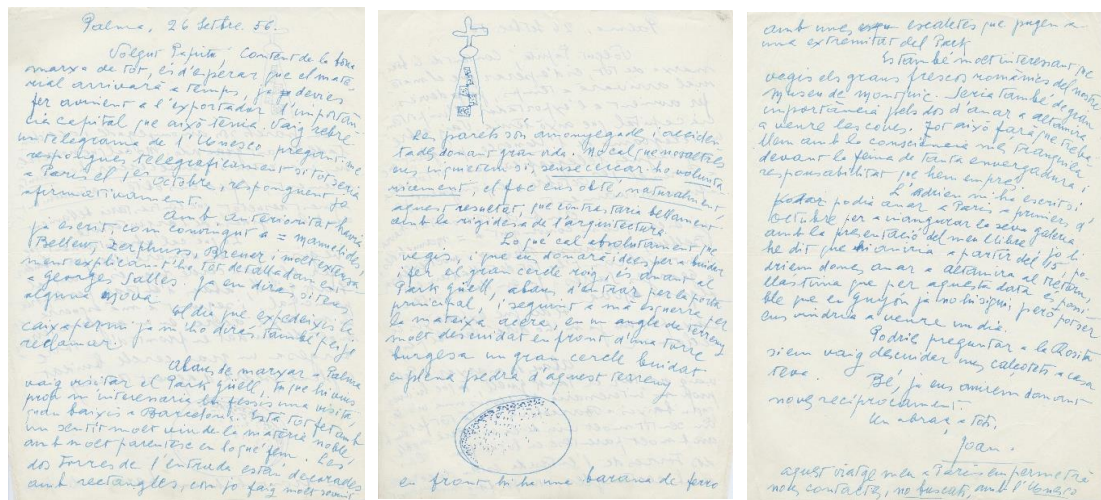 Palma, 26 Setbre. 56.
Volgut Papitu: Content de la bona
marxa de tot, és d'esperar que el mate-
rial arrivarà a temps, ja devies
fer avinent a l'exportador l'importàn-
cia capital que això tenia. Vaig rebre
un telegrama de l'Unesco pregant-me
respongués telegràficament si tot seria
a Paris el 1er octobre, responguent jo
afirmativament.
Amb anterioritat havia
ja escrit, com convingut a = Mamelides,
Bellew, Zerphuss, Breuer i molt extensa
ment explicant-ho tot detalladament
a Georges Salles. Ja em diràs si tens
alguna nova
El dia que expedeixis la
caixa per mi ja m'ho diràs, també, per jo
reclamar.
Abans de marxar a Palma
vaig visitar el Park Güell, lo que hi veus
prou m'interesaria hi fessis una visita
quan baixis a Barcelona. Està tot fet amb
un sentit molt viu de la matèria noble,
amb molt parentesc en lo que fem. Les
dos torres de l'entrada està decorades
amb rectangles, com jo faig molt sovint
les parets son amomegades i acciden-
tades donant gran vida. No cal que nosaltres
ens inquietem si, sense cercar-ho volunta
riament, el foc ens obté, naturalment,
aquest resultat, que contrastaria bellament
amb la rigidesa de l'arquitectura.
Lo que cal absolutament que
vegis, i que ens donarà idees per a buidar
i fer el gran cercle roig, és anant al
Park Güell, abans d'entrar per la porta
principal, i seguint a mà esquerra per
la mateixa acera, en un angle de terreny
molt descuidat en front d'una torre
burgesa un gran cercle buidat
en plena pedra d'aquest terreny
en front hi ha una barana de ferro
amb unes escaletes que pugen a
una extremitat del Park
Es també molt interessant que
vegis els grans frescos romànics del nostre
Museu de Montjuic. Seria també de gran
importància pels dos d'anar a Altamira
a veure les coves. Tot això farà que treba-
llem amb la consciència més tranquila
devant la feina de tanta envergadura i
responsabilitat que hem empres.
L'Adrien m'ha escrit si
podar podia anar a Paris a primers d'
octubre per a inaugurar la seva galeria
amb la presentació del meu llibre. Jo li
he dit que hi aniria a partir del 15, po-
driem doncs anar a Altamira al retorn,
llastima que per aquesta data és possi-
ble que en Guijon ja no hi sigui, però potser
ens vindria a veure un dia.
Podrie preguntar a la Rosita
si em vaig descuidar uns calcotets a casa
teva.
Bé, ja ens anirem donant
noves reciprocament.
Un abraç a tots,
Joan.
aquest viatge meu a Paris em permetrà
nous contactes, no buscats, amb l'Unesco